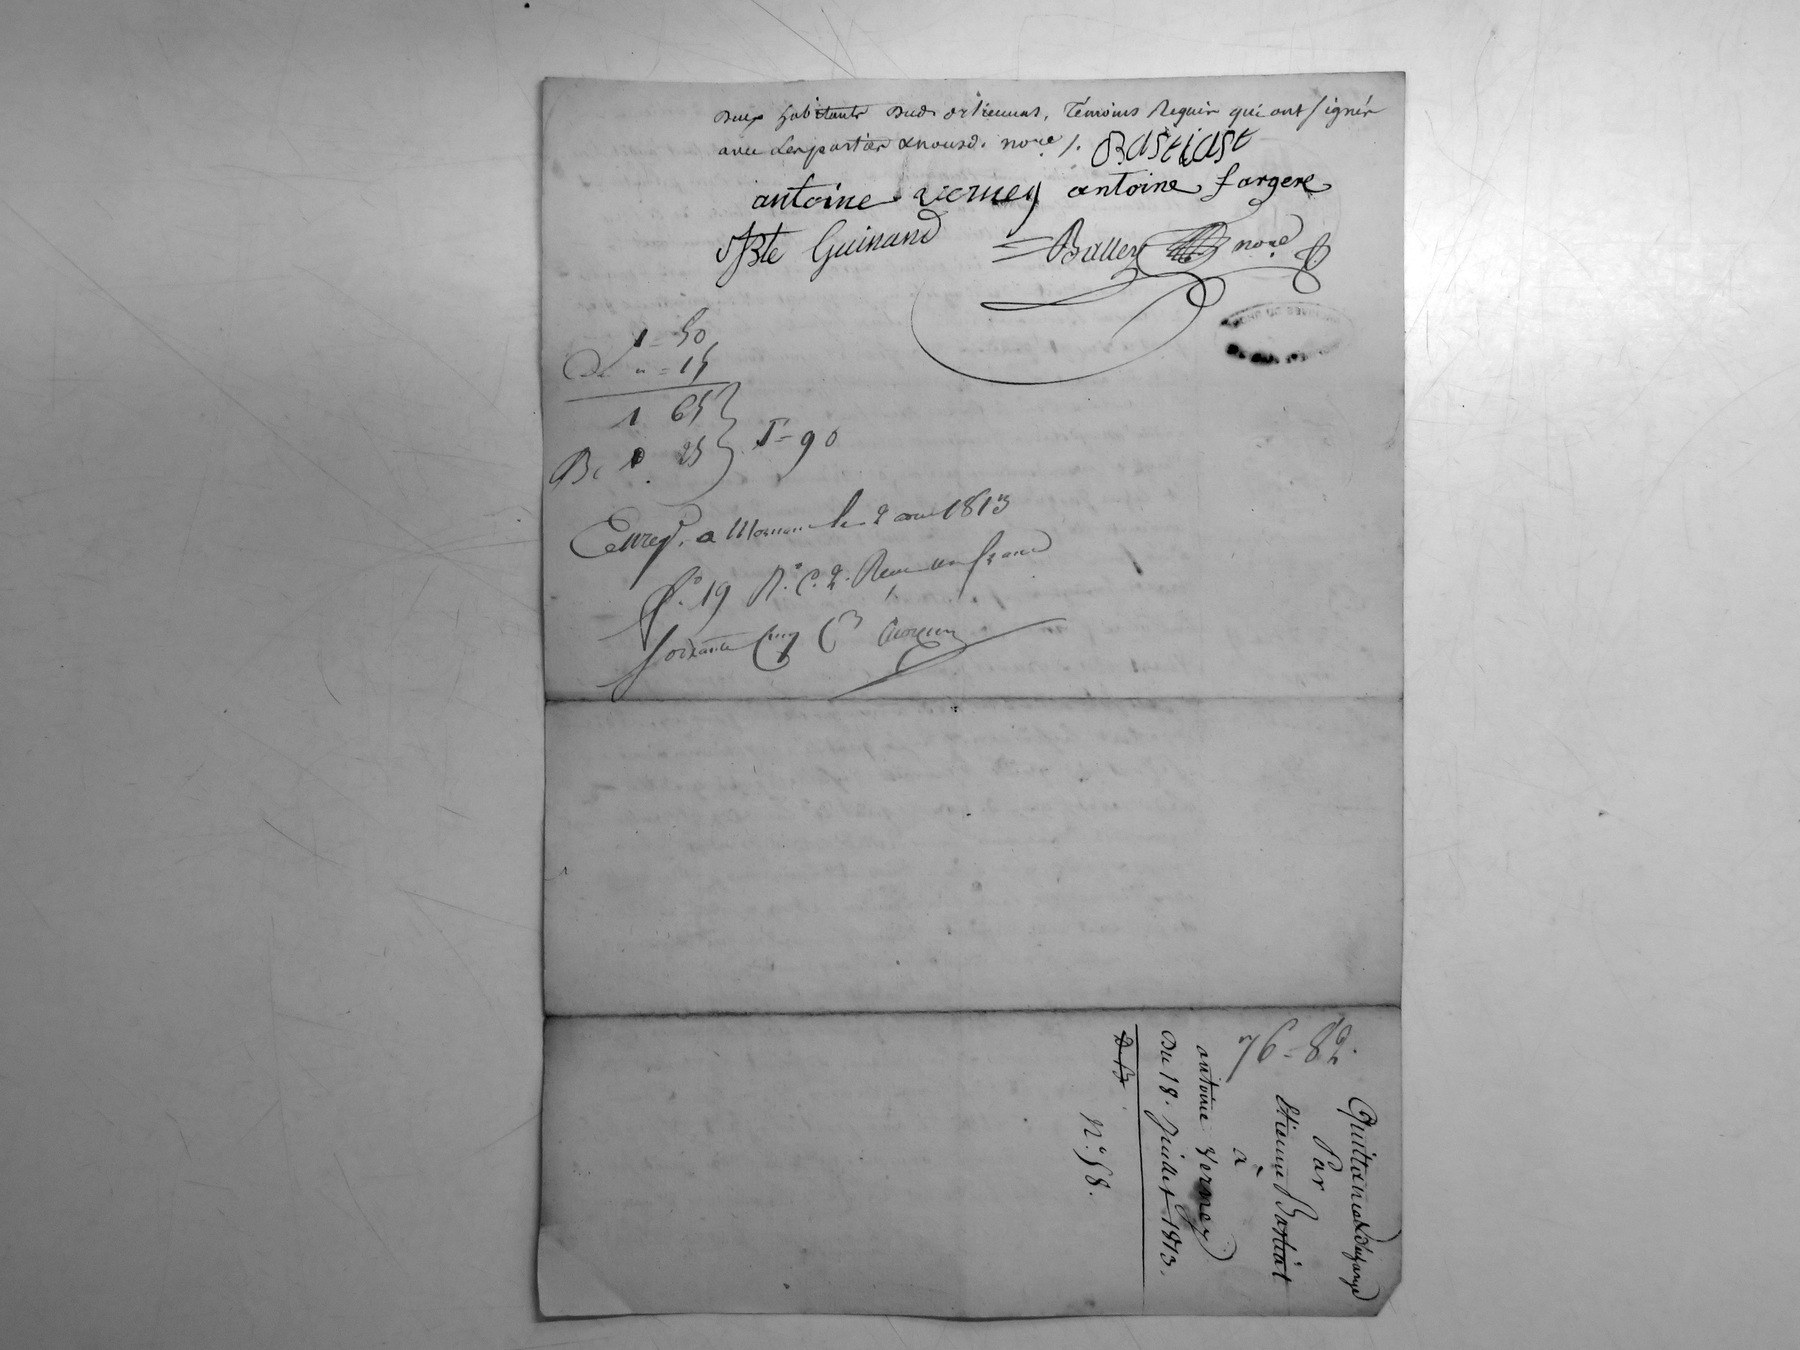 deux habitants dud. orlienas, Témoins Requis qui ont signés
avec les parties & nousd. nore /. Bastiast
antoine verney antoine fargere
JBte Guinand =Balley nore
1 = 50
De " = 15
1 65
Be 25 } T = 90
Enregé. a Mornant le 2 aout 1813
fo. 19 Ro. C. 2. Reçu un franc
soixante cinq Cmes
76 = 82.
Quittance & décharge
Par
Etienne Bastiat
à
antoine Verney
Du 18. Juillet 1813.
No. 58.